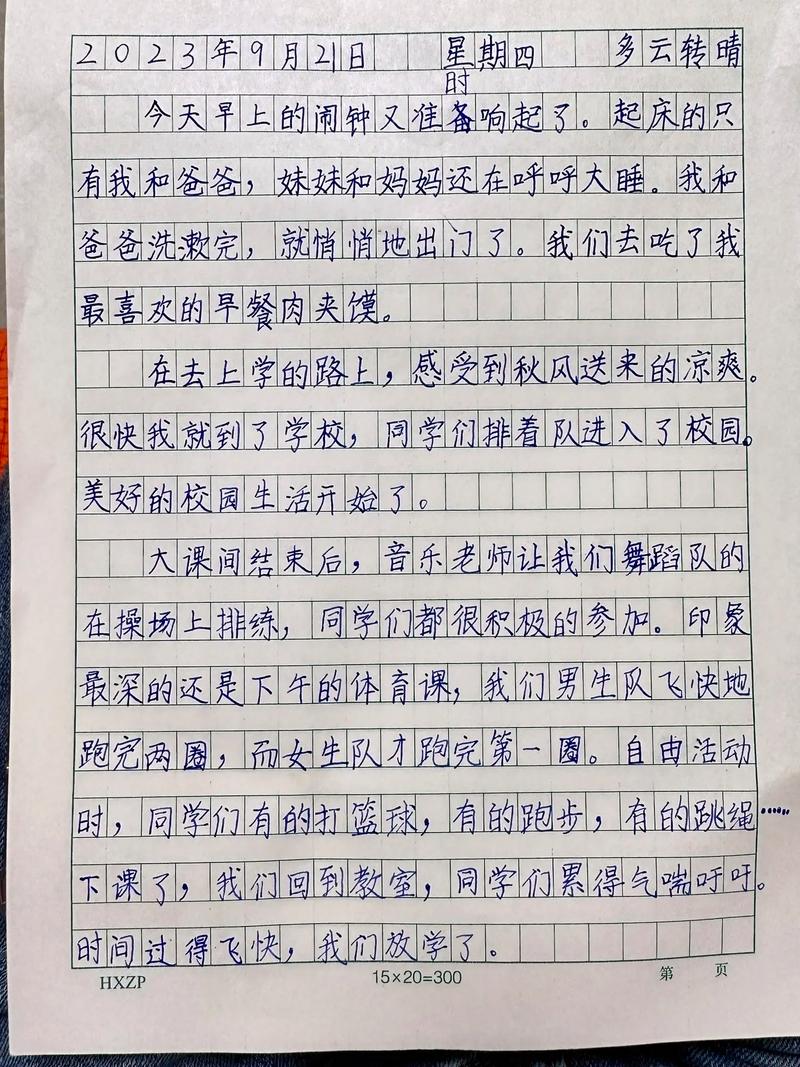 2023年9月21日 星期四 多云转晴
时
今天早上的闹钟又准备响起了。起床的只
有我和爸爸，妹妹和妈妈还在呼呼大睡。我和
爸爸洗漱完，就悄悄地出门了。我们去吃了我
最喜欢的早餐肉夹馍。
在去上学的路上，感受到秋风送来的凉爽。
很快我就到了学校，同学们排着队进入了校园。
美好的校园生活开始了。
大课间结束后，音乐老师让我们舞蹈队的
在操场上排练，同学们都很积极的参加。印象
最深的还是下午的体育课，我们男生队飞快地
跑完两圈，而女生队才跑完第一圈。自由活动
时，同学们有的打篮球，有的跑步，有的跳绳……
下课了，我们回到教室，同学们累得气喘吁吁。
时间过得飞快，我们放学了。
HXZP 15×20=300 第 页